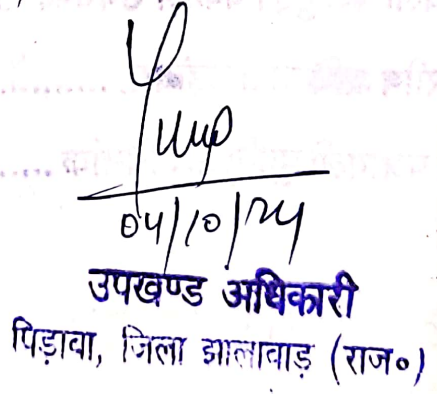 04/10/24
उपखण्ड अधिकारी
पिड़ावा, जिला झालावाड़ (राज०)